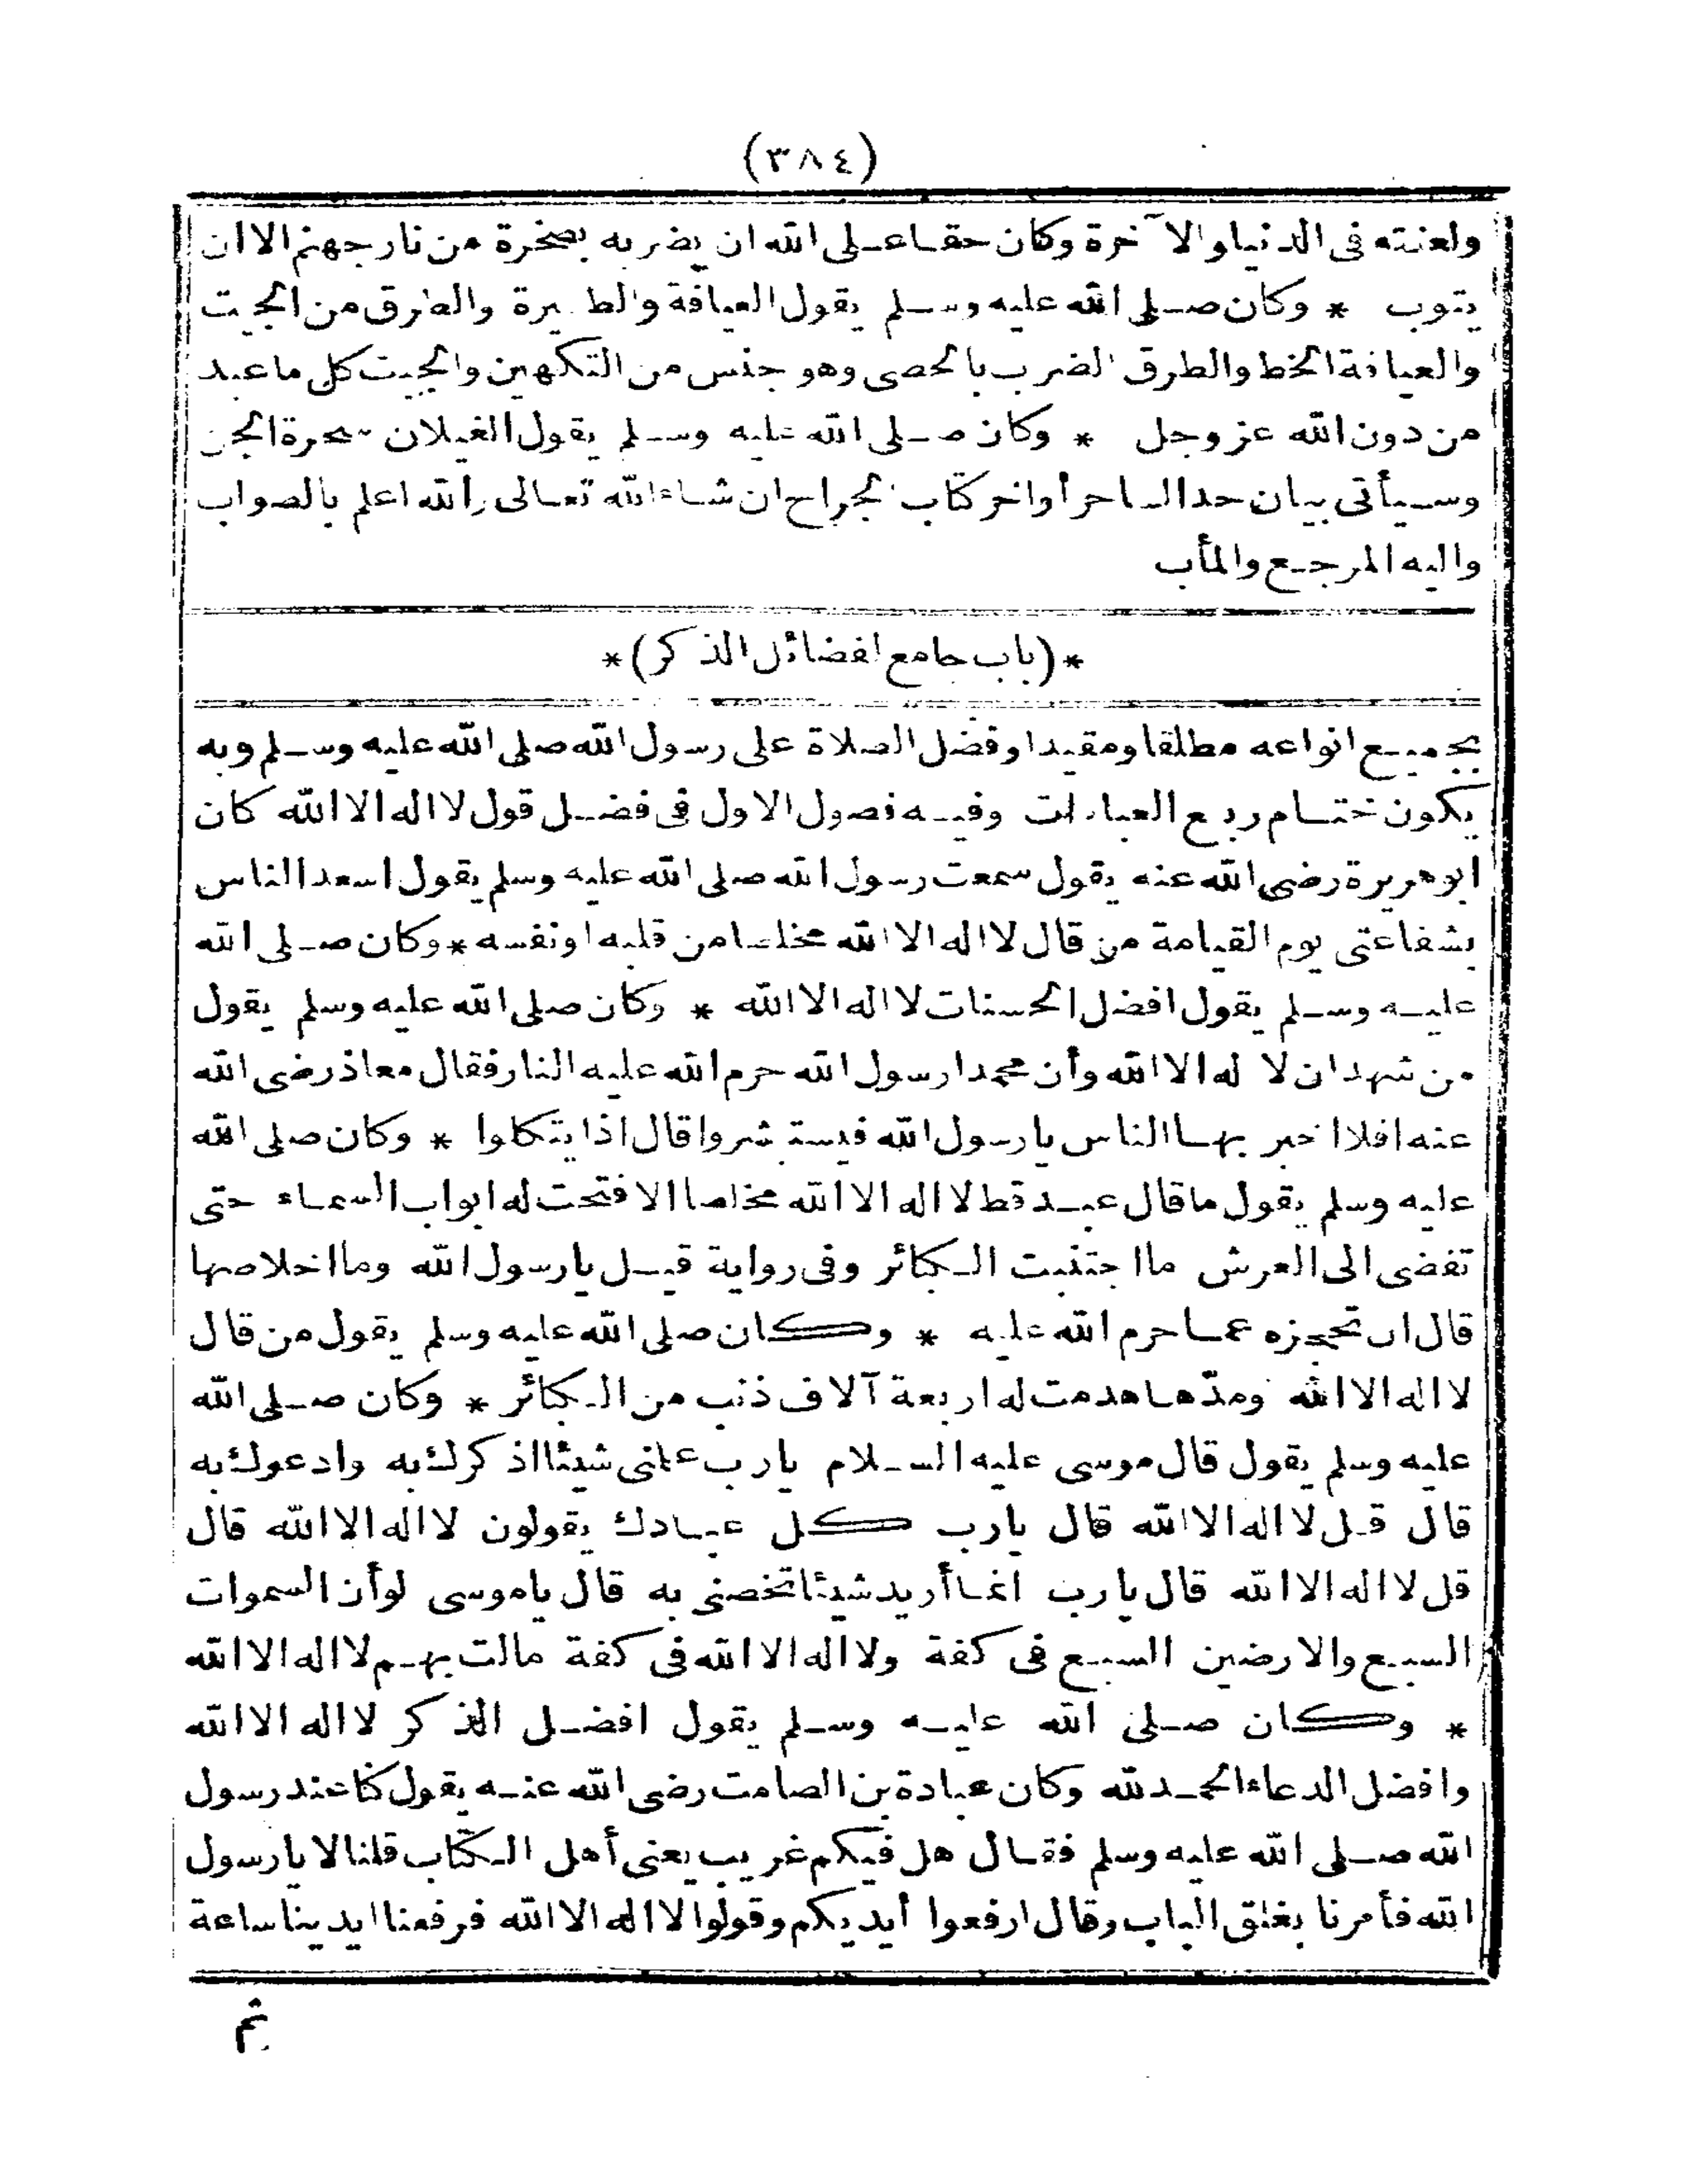 (٣٨٤)
ولعنته فى الدنيا والآخرة وكان حقا على الله ان يضربه بصخرة من نار جهنم الا ان
يتوب * وكان صلى الله عليه وسلم يقول العيافة والطيرة والطرق من الجبت
والعيافة الخط والطرق الضرب بالحصى وهو جنس من التكهين والجبت كل ما عبد
من دون الله عز وجل * وكان صلى الله عليه وسلم يقول الغيلان سحرة الجن
وسيأتى بيان حد الساحر أواخر كتاب الجراح ان شاء الله تعالى والله اعلم بالصواب
واليه المرجع والمأب
*(باب جامع لفضائل الذكر)*
بجميع انواعه مطلقا ومقيدا وفضل الصلاة على رسول الله صلى الله عليه وسلم وبه
يكون ختام ربع العبادات وفيه فصول الاول فى فضل قول لا اله الا الله كان
ابو هريرة رضى الله عنه يقول سمعت رسول الله صلى الله عليه وسلم يقول اسعد الناس
بشفاعتى يوم القيامة من قال لا اله الا الله مخلصا من قلبه او نفسه * وكان صلى الله
عليه وسلم يقول افضل الحسنات لا اله الا الله * وكان صلى الله عليه وسلم يقول
من شهد ان لا اله الا الله وأن محمدا رسول الله حرم الله عليه النار فقال معاذ رضى الله
عنه افلا اخبر بها الناس يا رسول الله فيستبشروا قال اذا يتكلوا * وكان صلى الله
عليه وسلم يقول ما قال عبد قط لا اله الا الله مخلصا الا فتحت له ابواب السماء حتى
تفضى الى العرش ما اجتنبت الكبائر وفى رواية قيل يا رسول الله وما اخلاصها
قال ان تحجزه عما حرم الله عليه * وكان صلى الله عليه وسلم يقول من قال
لا اله الا الله ومدّها هدمت له اربعة آلاف ذنب من الكبائر * وكان صلى الله
عليه وسلم يقول قال موسى عليه السلام يا رب علمنى شيئا اذكرك به وادعوك به
قال قل لا اله الا الله قال يا رب كل عبادك يقولون لا اله الا الله قال
قل لا اله الا الله قال يا رب انما أريد شيئا تخصنى به قال يا موسى لو أن السموات
السبع والارضين السبع فى كفة ولا اله الا الله فى كفة مالت بهم لا اله الا الله
* وكان صلى الله عليه وسلم يقول افضل الذكر لا اله الا الله
وافضل الدعاء الحمد لله وكان عبادة بن الصامت رضى الله عنه يقول كنا عند رسول
الله صلى الله عليه وسلم فقال هل فيكم غريب يعنى أهل الكتاب قلنا لا يا رسول
الله فأمرنا بغلق الباب وقال ارفعوا أيديكم وقولوا لا اله الا الله فرفعنا ايدينا ساعة
ثم